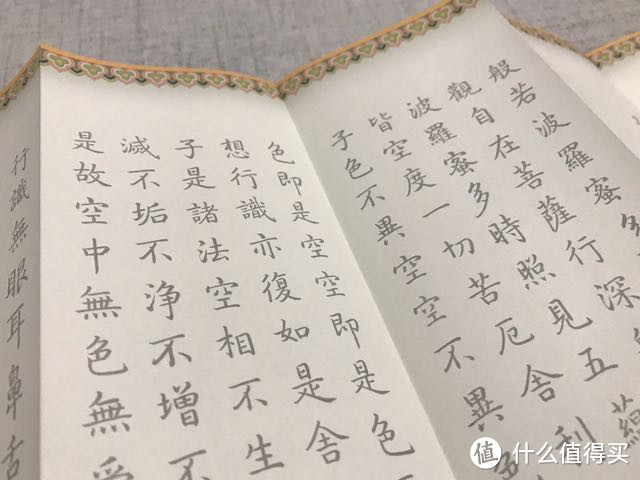 般若波羅蜜多
觀自在菩薩行深
波羅蜜多時照見五蘊
皆空度一切苦厄舍利
子色不異空空不異色
色即是空空即是色
想行識亦復如是舍
子是諸法空相不生
滅不垢不淨不增不
是故空中無色無受
行識無眼耳鼻舌
值 什么值得买